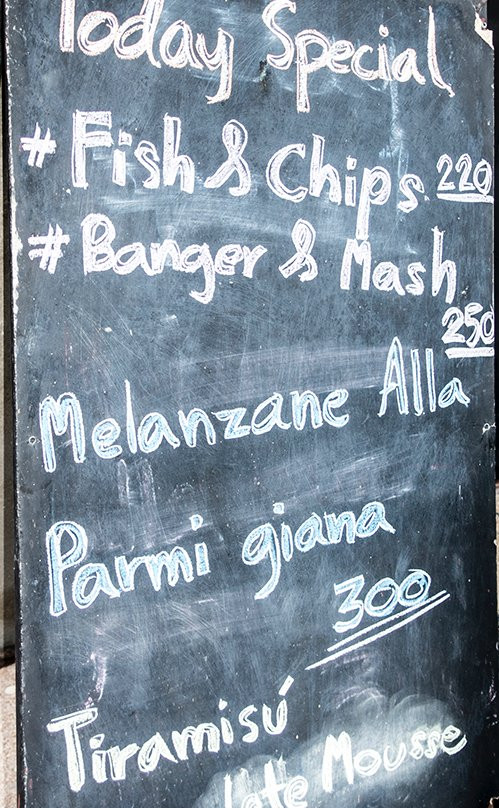 Today Special
# Fish & Chips 220
# Banger & Mash
250
Melanzane Alla
Parmi giana
300
Tiramisú
Mousse